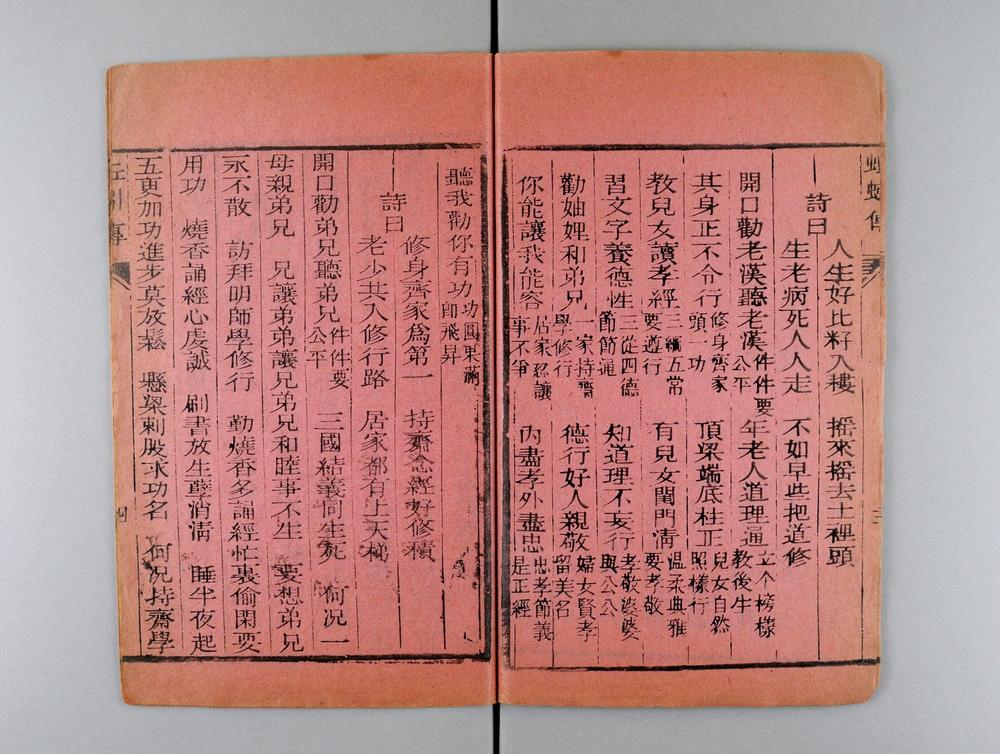 詩曰
人生好比籽入耬　搖來搖去土裡頭
生老病死人人走　不如早些把道修
開口勸老漢聽老漢件件要公平　年老人道理通立个榜樣教後生
其身正不令行修身齊家頭一功　頂梁端底柱正兒女自然照樣行
教兒女讀孝經三綱五常要遵行　有兒女閨門清溫柔典雅要孝敬
習文字養德性三從四德節節通　知道理不妄行孝敬婆婆與公公
勸妯娌和弟兄家持齋學修行　德行好人親敬婦女賢孝留美名
你能讓我能容居家忍讓事不爭　內盡孝外盡忠忠孝節義是正經
聽我勸你有功功圓果滿即飛昇
詩曰
修身齊家爲第一　持齋念經好修積
老少共入修行路　居家都有上天梯
開口勸弟兄聽弟兄件件要公平　三國結義同生死　何況一
母親弟兄　兄讓弟弟讓兄弟兄和睦事不生　要想弟兄
永不散　訪拜明師學修行　勤燒香多誦經忙裏偷閑要
用功　燒香誦經心虔誠　刷書放生孽消清　睡半夜起
五更加功進步莫放鬆　懸梁刺股求功名　何况持齋學